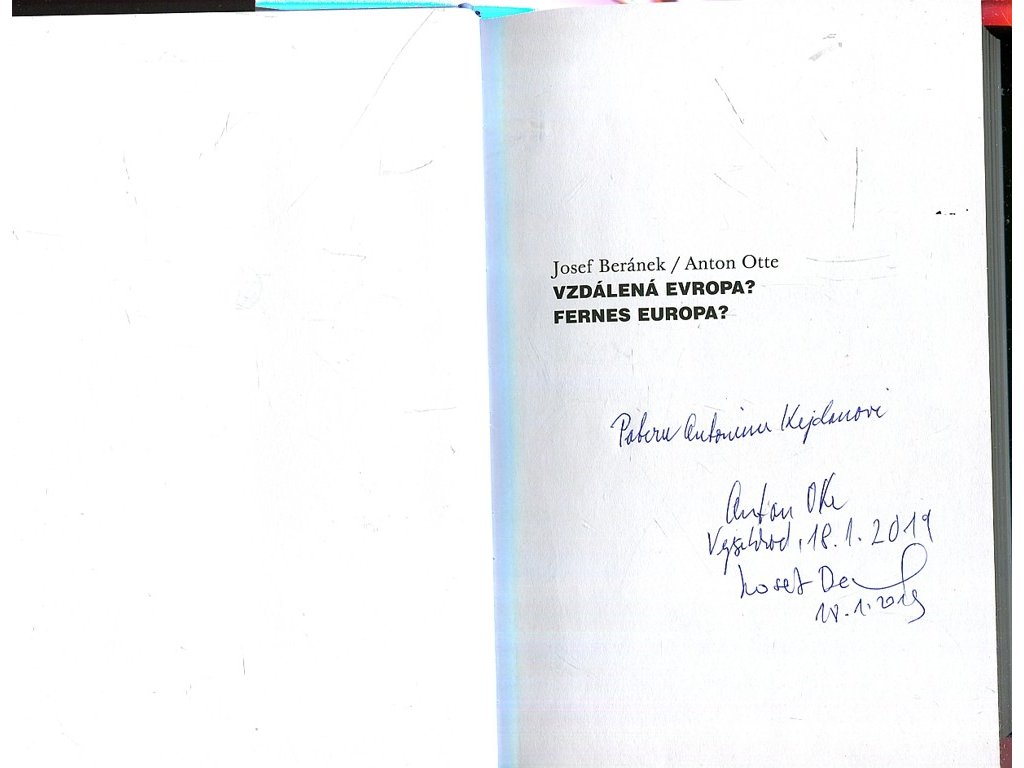 Josef Beránek / Anton Otte
VZDÁLENÁ EVROPA?
FERNES EUROPA?
Antonínu Kejdanovi
Anton Otte
Vyšehrad, 18.1.2019
Josef
18.1.2019